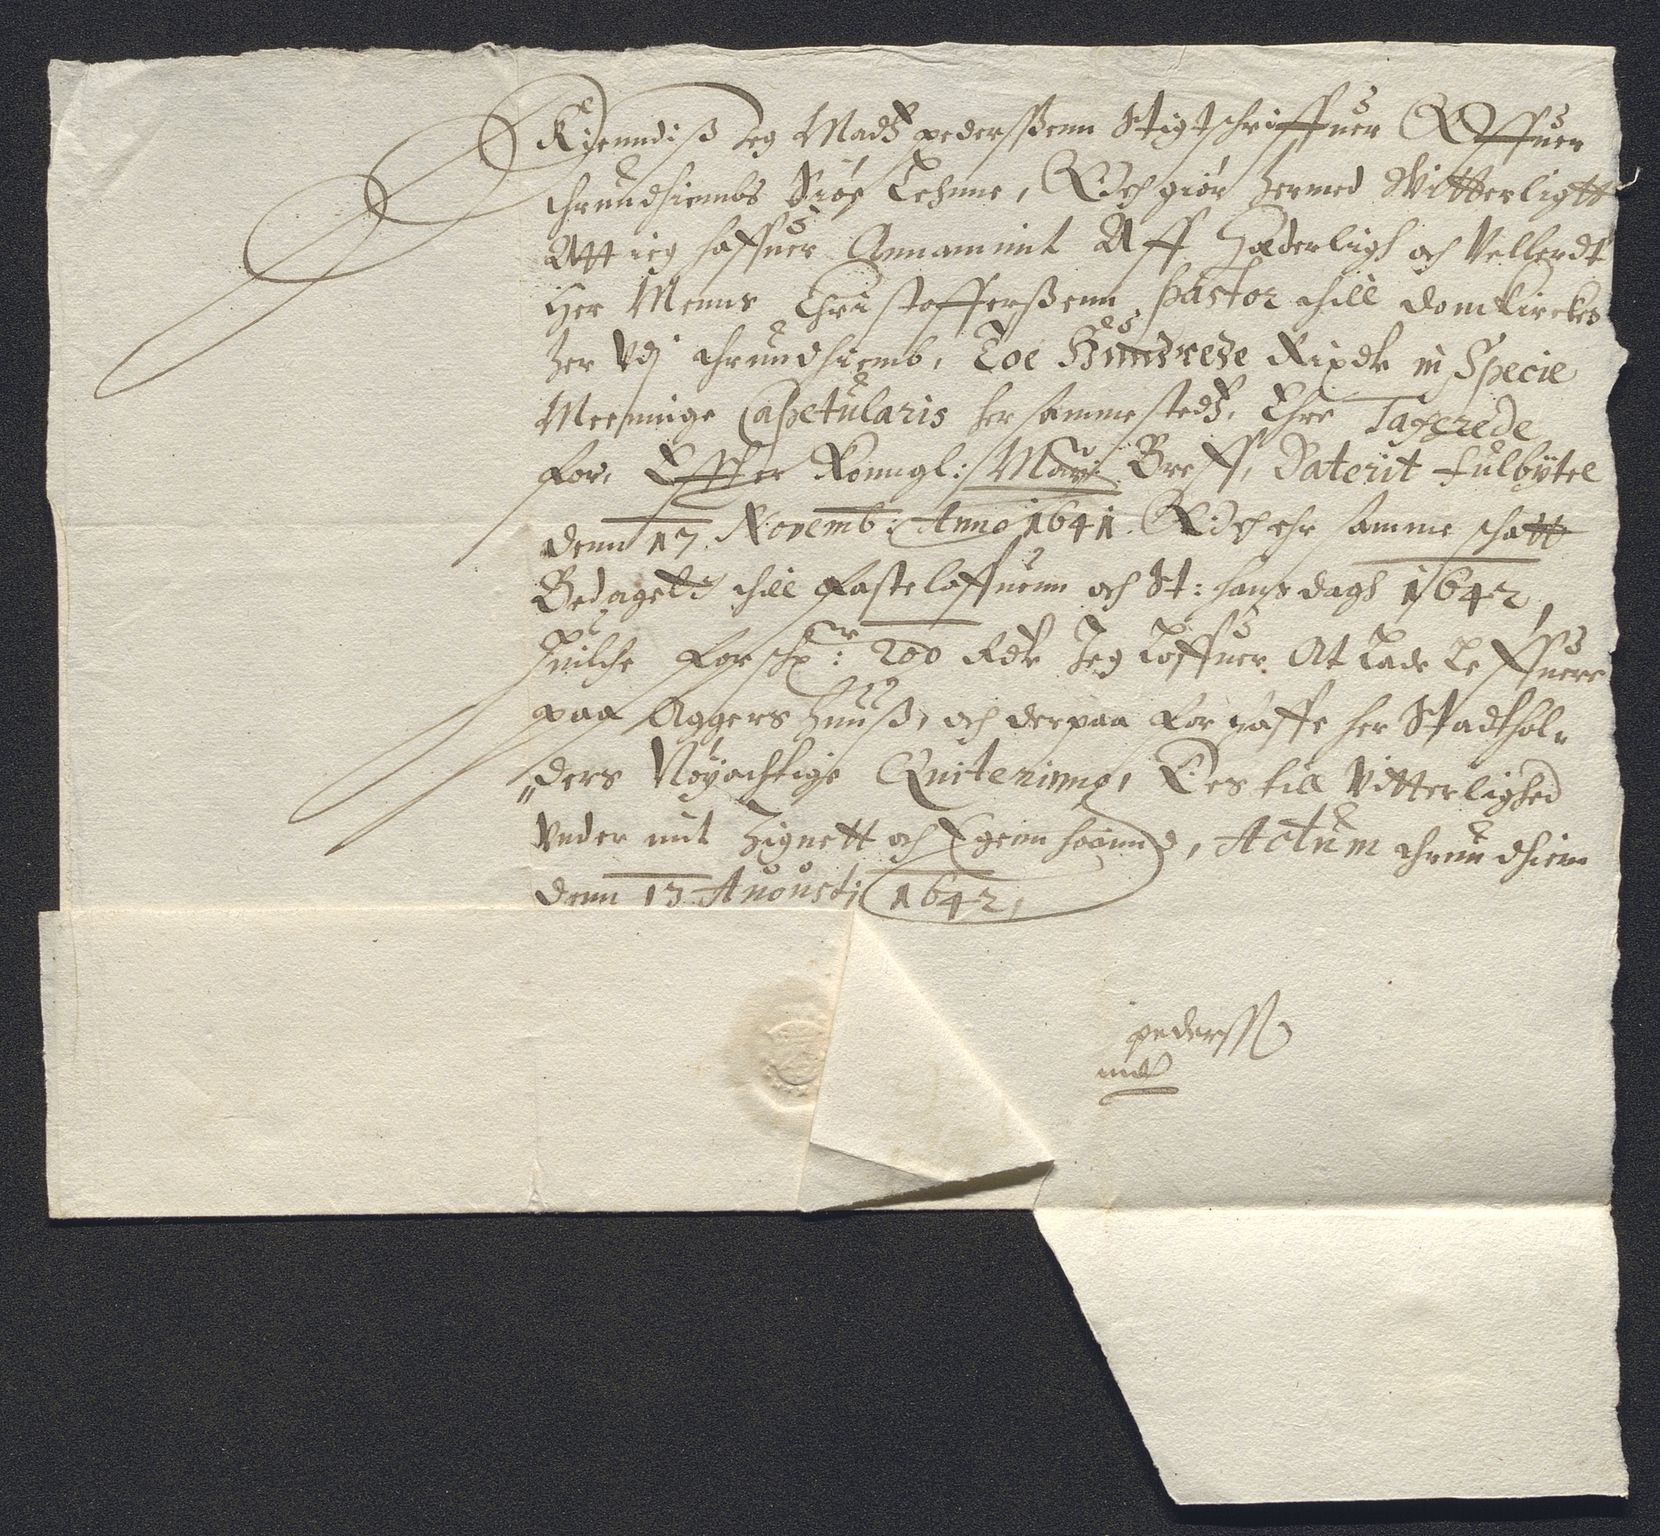 Kienndiß Jeg Madz pederßenn Stigtschriffuer Offuer
thrundhiembs Siøe Lehnne, Och giør hermed Witterligtt
Att ieg haffuer Annammit Aff Hæderligh och Vellerdt
Her Menns Christofferßenn, Pastor thill domkircken
her vdj thrundhiemb, Toe Hundrede Rixdr in Specie
Meennige Capetularis her sammestedz, Ehre Taxerede
for, Effter Konngl: May: Breff, Daterit Fulbytel
denn 17 Novemb: Anno 1641. Och ehr samme schatt
Bedagett thill Fastelaffuenn och St: hansdagh 1642,
Huilche forschr: 200 Rdr Jeg Loffuer At Lade Leffuere
paa Aggershuuß, och derpaa forschaffe her Stadthol„
„ders Nøyachtige Quiterinng, Des till Vitterlighed
Vnder mit Zignett och Egenn haannd, Actum thrundhiem
denn 13 Augusti 1642,
pederss
mdr